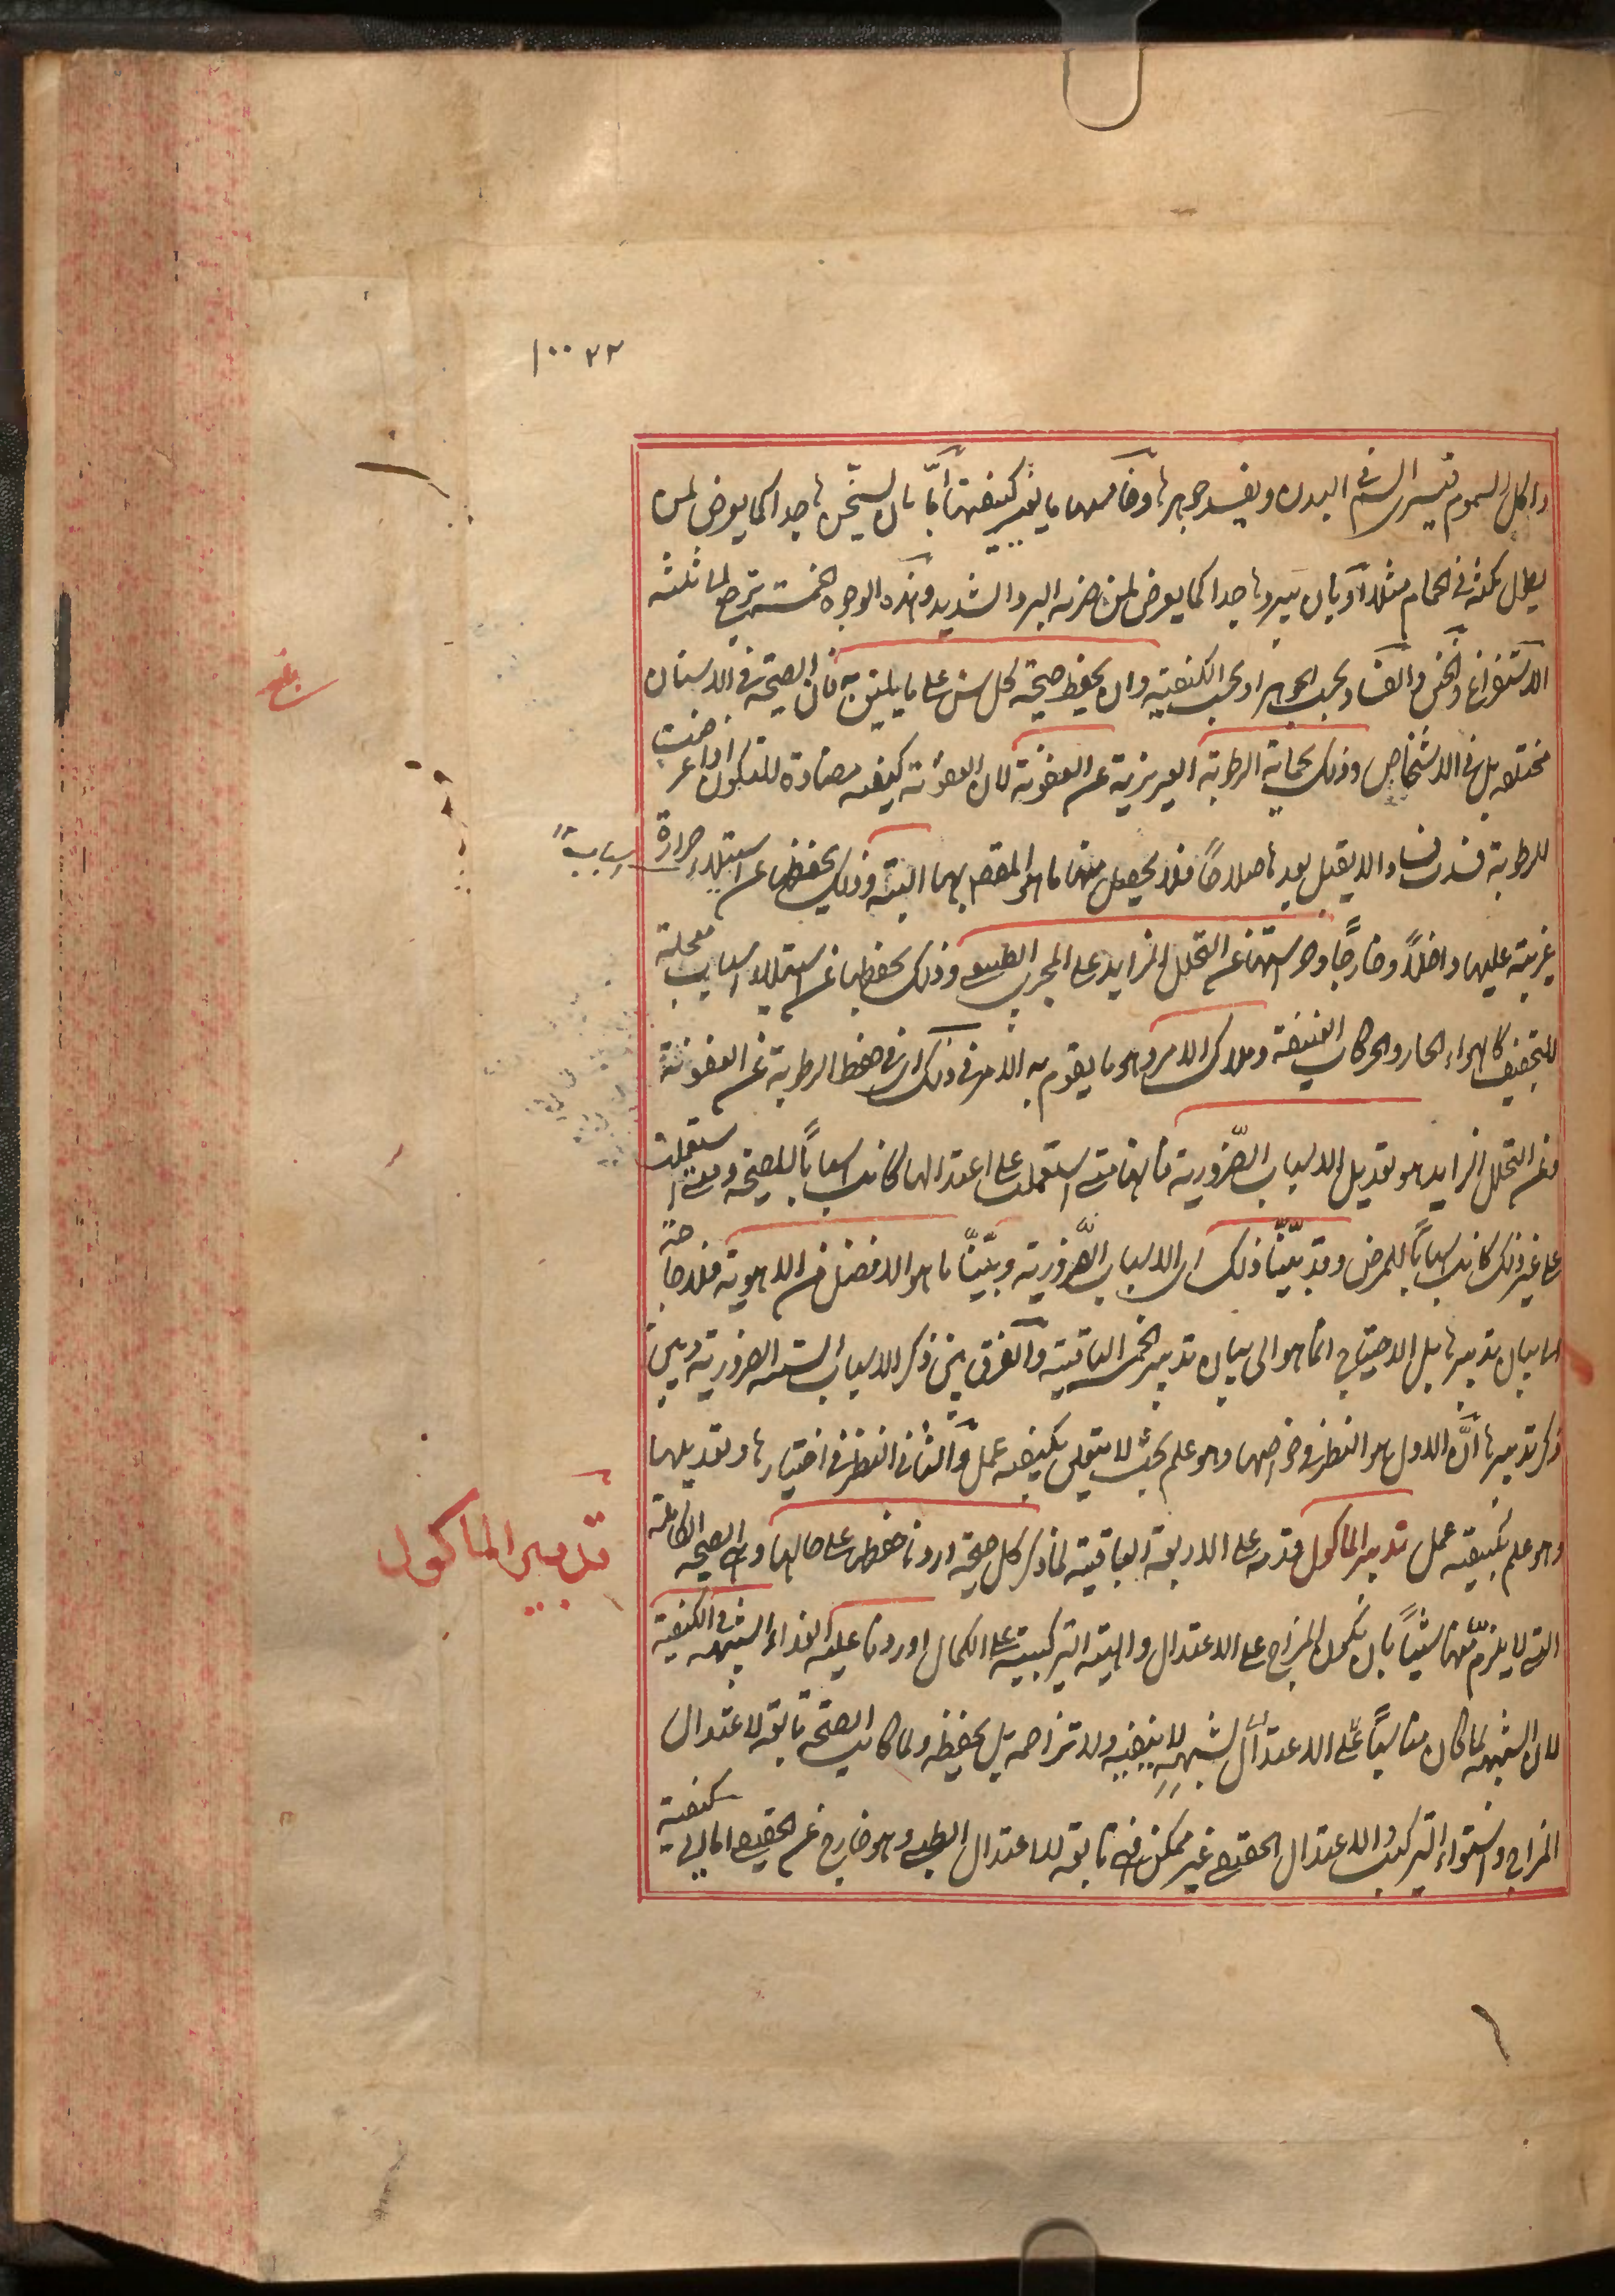 ١٠٠٢٢
واكل السموم فيسرى السم فى البدن ويفسد جوهرها وخامسها ما يغير كيفيتها اما بان يسخن ها جدا كما يعرض لمن
يطول مكثه فى الحمام مثلا او بان يبردها جدا كما يعرض لمن ضربه البرد الشديد وهذه الوجوه الخمسة ترجع لما ثلثه
الاستفراغ والخنق والفساد بحسب الجوهر او بحسب الكيفية وان يحفظ صحة كل سن على ما يليق به فان الصحة فى الاسنان
مختلفه بل فى الاشخاص وذلك بحماية الرطوبة الغريزية عن العفونة لان العفونة كيفيه مضادة للتكون اذا عرضت
للرطوبة فسدت فسادا لا يقبل بعدها صلاحاً فلا يحصل منها ما هو المقصد بها البتة وذلك بحفظها عن استيلاء حرارة
غريبة عليها داخلاً وخارجاً وحراستها عن التحلل الزايد على المجرى الطبيعى وذلك بحفظها عن استيلاء اسباب معجلة
للتجفيف كالهواء الحار والحركات العنيفة وملاك الامر وهو ما يقوم به الامر فى ذلك اى فى حفظ الرطوبة عن العفونة
وعن التحلل الزايد هو تعديل الاسباب الضّرورية فانها متى استعملت على اعتدالها كانت اسباباً للصحة ومتى استعملت
على غير ذلك كانت اسباباً للمرض وقد بيّنّا ذلك اى الاسباب الضّرورية وبيّنّا ما هو الافضل من الاهوية فلا حاجة
الى بيان تدبيرها بل الاحتياج انما هو الى بيان تدبير الخمس الباقية والفرق بين ذكر الاسباب الستة الضرورية وبين
ذكر تدبيرها انّ الاول هو النظر فى خواصها وهو علم بحت لا يتعلق بكيفيه عمل والثانى النظر فى اختيارها وتعديلها
وهو علم بكيفيته عمل تدبير الماكول قدمه على الاربعة الباقية لما ذكر كل صحة اردنا حفظها على حالها وهى الصحة الكاملة
التى لا يلزم منها شيئاً بان يكون المزاج على الاعتدال والهيئة التركيبية على الكمال اوردنا عليه الغذاء الشبيه فى الكيفية
لان الشبيه لما كان مناسباً على الاعتدال لشبهه لا يغيره ولا تزاحمه بل يحفظه ولما كانت الصحة تابعة لاعتدال
المزاج واستواء التركيب والاعتدال الحقيقى غير ممكن فهى تابعة للاعتدال الطبى وهو خارج عن الحقيقى اما الى كيفية
بلغ
تدبير الماكول